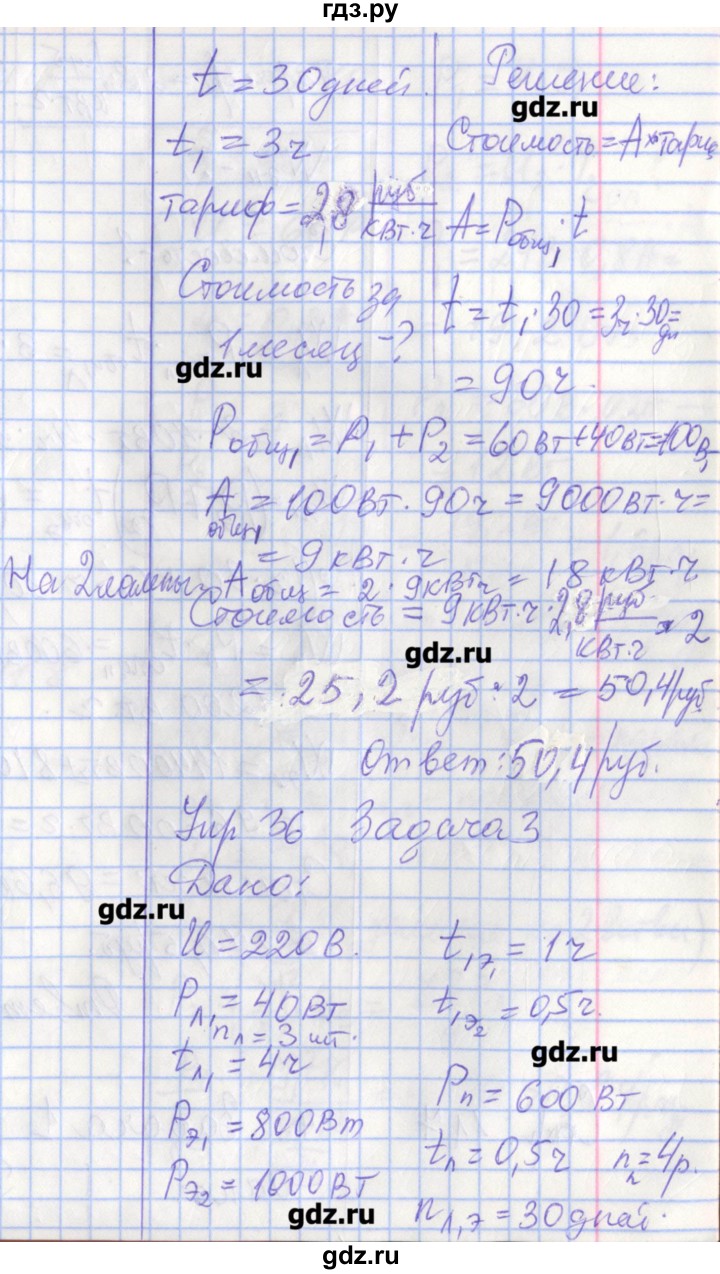 гдз.ру
t = 30 дней.
t₁ = 3ч
тариф = 2,8 руб/кВт·ч
Стоимость за
1 месяц - ?
Решение:
gdz.ru
Стоимость = A × тариф
A = Pобщ₁ · t
t = t₁ · 30 = 3ч · 30 дн =
gdz.ru
= 90 ч.
Pобщ₁ = P₁ + P₂ = 60Вт + 40Вт = 100В
Aобщ₁ = 100Вт · 90ч = 9000Вт·ч =
= 9 кВт·ч
На 2 лампы: Aобщ = 2 · 9кВтч = 18 кВт·ч
Стоимость = 9кВт·ч · 2,8 руб/кВт·ч × 2
gdz.ru
= 25,2 руб · 2 = 50,4 руб
Ответ: 50,4 руб.
Упр 36 Задача 3
Дано:
gdz.ru
U = 220 В.
Pл₁ = 40Вт
nл = 3 шт.
tл₁ = 4ч
Pэ₁ = 800Вт
Pэ₂ = 1000Вт
t₁э₁ = 1ч
t₁э₂ = 0,5ч.
gdz.ru
Pп = 600 Вт
tп = 0,5ч nп = 4р.
nл,э = 30 дней.
gdz.ru
gdz.ru